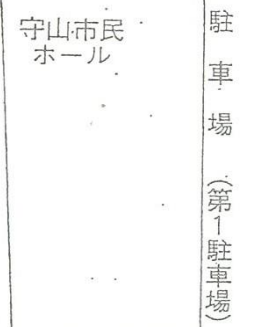 守山市民
ホール
駐車場 (第1駐車場)